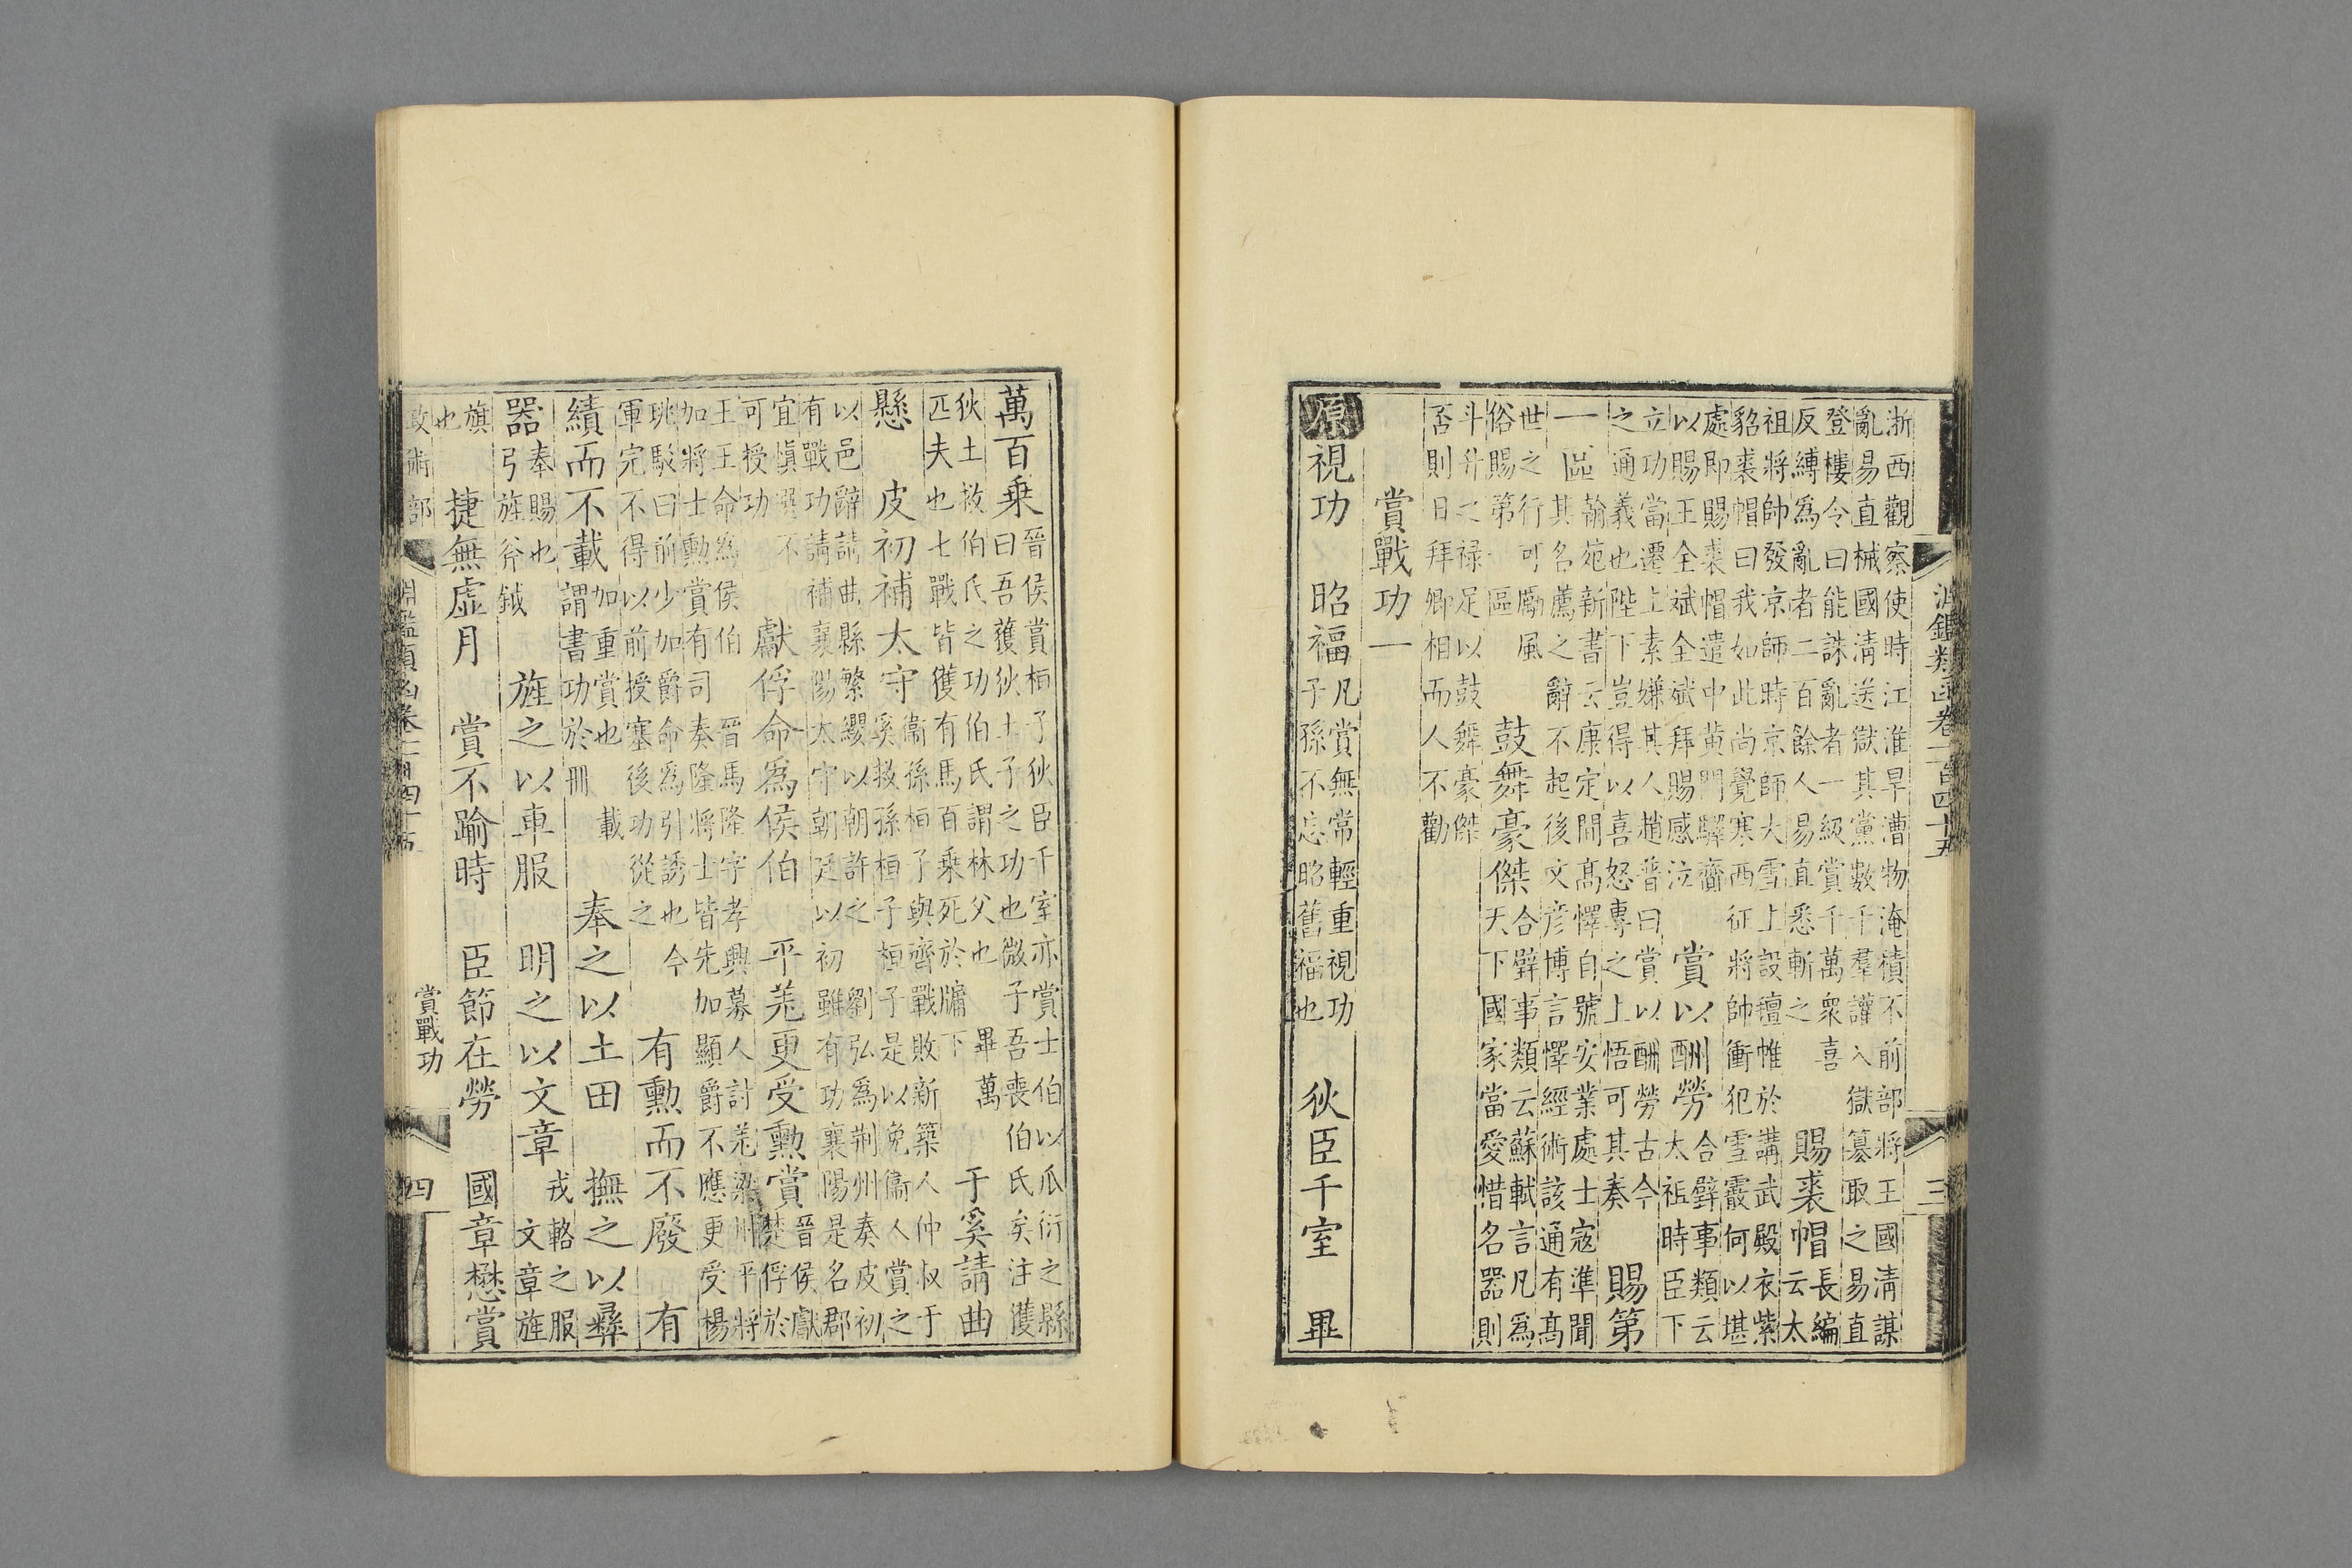 淵鑑類函卷一百四十五 三
浙西觀察使時江淮旱漕物淹積不前部將王國清謀
亂易直械國清送獄其黨數千羣讙入獄篡取之易直
登樓令曰能誅亂者一級賞千萬衆喜
反縛爲亂者二百餘人易直悉斬之
賜裘帽
長編
云太
祖將帥發京師時京師大雪上設氊帷於講武殿衣紫
貂裘帽曰我如此尚覺寒西征將帥衝犯雪霰何以堪
處即賜裘帽遣中黄門驛齎
以賜王全斌全斌拜賜感泣
賞以酬勞
合璧事類云
太祖時臣下
立功當遷上素嫌其人趙普曰賞以酬勞古今
之通義也陛下豈得以喜怒專之上悟可其奏
賜第
一區
翰苑新書云康定間髙懌自號安業處士寇準聞
其名薦之辭不起後文彦博言懌經術該通有髙
世之行可勵風
俗賜第一區
鼓舞豪傑
合璧事類云蘇軾言凡爲
天下國家當愛惜名器則
斗升之禄足以鼓舞豪傑
否則日拜卿相而人不勸
賞戰功一
原視功 昭福
凡賞無常輕重視功
子孫不忘昭舊福也
狄臣千室 畢
萬百乗
晉侯賞桓子狄臣千室亦賞士伯以瓜衍之縣
曰吾獲狄土子之功也微子吾喪伯氏矣注獲
狄土救伯氏之功伯氏謂林父也 畢萬
匹夫也七戰皆獲有馬百乗死於牖下
于奚請曲
懸 皮初補太守
衞孫桓子與齊戰敗新築人仲叔于
奚救孫桓子桓子是以免衞人賞之
以邑辭請曲縣繁纓以朝許之 劉弘爲荆州奏皮初
有戰功請補襄陽太守朝廷以初雖有功襄陽是名郡
宜慎選不
可授功
獻俘命爲侯伯 平羌更受勲賞
晉侯獻
楚俘於
王王命爲侯伯 晉馬隆字孝興募人討羌梁州平將
加將士勲賞有司奏隆將士皆先加顯爵不應更受楊
珧駁曰前少加爵命爲引誘也今
軍完不得以前授塞後功從之
有勲而不廢 有
績而不載
加重賞也 載
謂書功於冊
奉之以土田 撫之以彝
器
奉賜也
弓旌斧鉞
旌之以車服 明之以文章
戎輅之服
文章旌
旗
也
捷無虚月 賞不踰時 臣節在勞 國章懋賞
政術部 淵鑑類函卷一百四十五 賞戰功 四